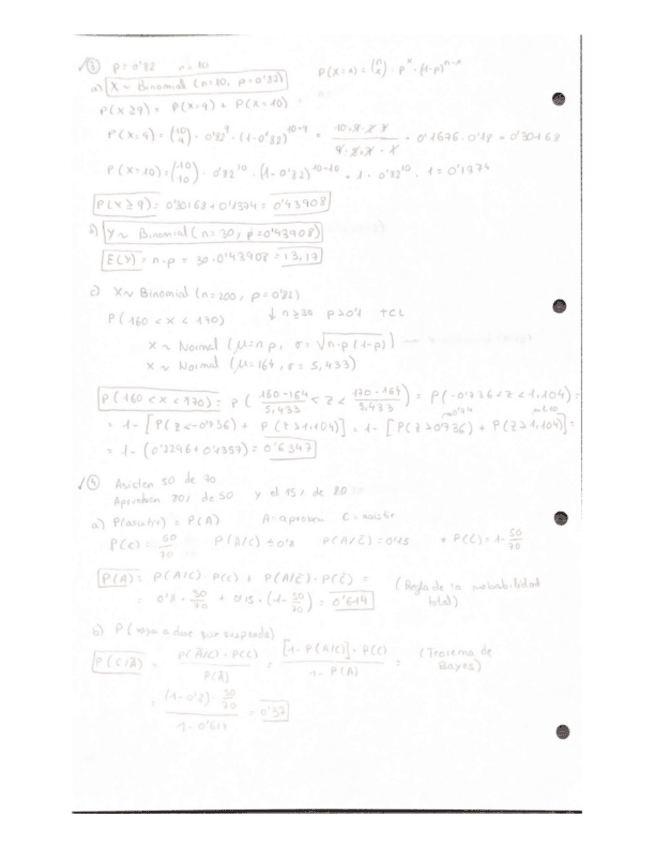 √③ p=0'82 n=10 P(X=x)=(n x)·p^x·(1-p)^(n-x)
a) X~Binomial (n=10, p=0'82)
P(X≥9)= P(X=9) + P(X=10)
P(X=9)=(10 9)·0'82^9·(1-0'82)^(10-9) = · 0'1676·0'18 = 0'30168
P(X=10)=(10 10)·0'82^10·(1-0'82)^(10-10) = 1·0'82^10·1=0'1374
P(X≥9)= 0'30168+0'1374= 0'43908
b) Y~ Binomial(n=30, p=0'43908)
E(Y)= n·p = 30·0'43908=13,17
c) X~ Binomial (n=200, p=0'82)
P(160<X<170) ↓ n≥30 p>0'1 TCL
X ~ Normal (μ=np, σ=√n·p(1-p))
X ~ Normal (μ=164, σ=5,433)
P(160<X<170)= P( (160-164)/5,433 < Z < (170-164)/5,433 )= P(-0'736<Z<1,104)=
= 1-[P(Z<-0'736)+ P(Z>1,104)]= 1-[P(Z>0'736) + P(Z>1,104)]=
= 1-(0'2296+0'1357)= 0'6347
√④ Asisten 50 de 70
Aprueban 80% de 50 y el 15% de 20
a) P( ) = P(A) A=aprobar C=asistir
P(C)= 50/70 P(A/C)=0'8 P(A/C̄)=0'15 P(C̄)=1-50/70
P(A)= P(A/C)·P(C) + P(A/C̄)·P(C̄) = (Regla de la probabilidad
= 0'8·50/70 + 0'15·(1-50/70)= 0'614 total)
b) P(vaya a clase que suspenda)
P(C/Ā) = P(Ā/C)·P(C) / P(Ā) = [1-P(A/C)]·P(C) / 1-P(A) = (Teorema de
Bayes)
= (1-0'8)·50/70 / 1-0'614 = 0'37